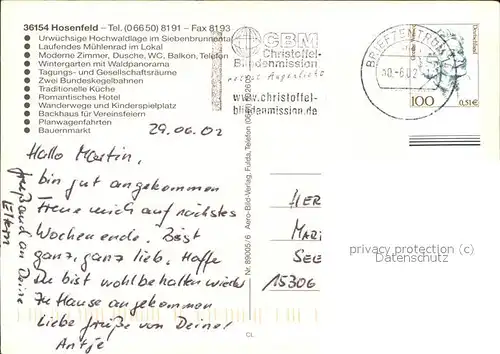 36154 Hosenfeld – Tel. (06650) 8191 – Fax 8193
Urwüchsige Hochwaldlage im Siebenbrunnental
Laufendes Mühlenrad im Lokal
Moderne Zimmer, Dusche, WC, Balkon, Telefon
Wintergarten mit Waldpanorama
Tagungs- und Gesellschaftsräume
Zwei Bundeskegelbahnen
Traditionelle Küche
Romantisches Hotel
Wanderwege und Kinderspielplatz
Backhaus für Vereinsfeiern
Planwagenfahrten
Bauernmarkt
29.06.02
Hallo Martin,
bin gut angekommen
Freue mich auf nächstes
Wochenende. Bist
ganz, ganz lieb. Hoffe
Du bist wohlbehalten wieder
zu Hause angekommen
Liebe Grüße von Deiner
Antje
Gruß auch an Deine
Eltern
Nr. 89005/6 Aero-Bild-Verlag, Fulda, Telefon
CL
CBM
Christoffel-
Blindenmission
rettet Augenlicht
www.christoffel-
blindenmission.de
BRIEFZENTRUM
30.-6.02
Deutschland
100
0,51€
HER
MAR
SEE
15306
privacy protection (c)
Datenschutz